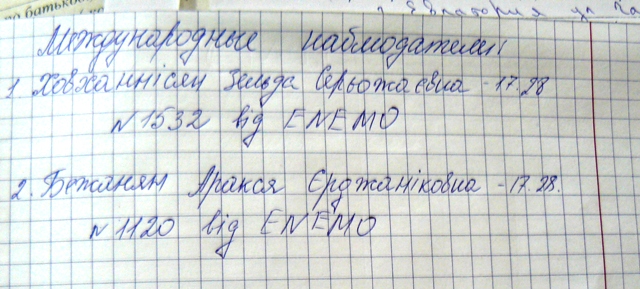 по батькові
Евпатория ул
Международные наблюдатели:
1 Ховханнісян Зельда Серьожаєвна - 17.28
N 1532 від ENEMO
2. Бежанян Аракся Єрджаніковна - 17.28.
N 1120 від ENEMO